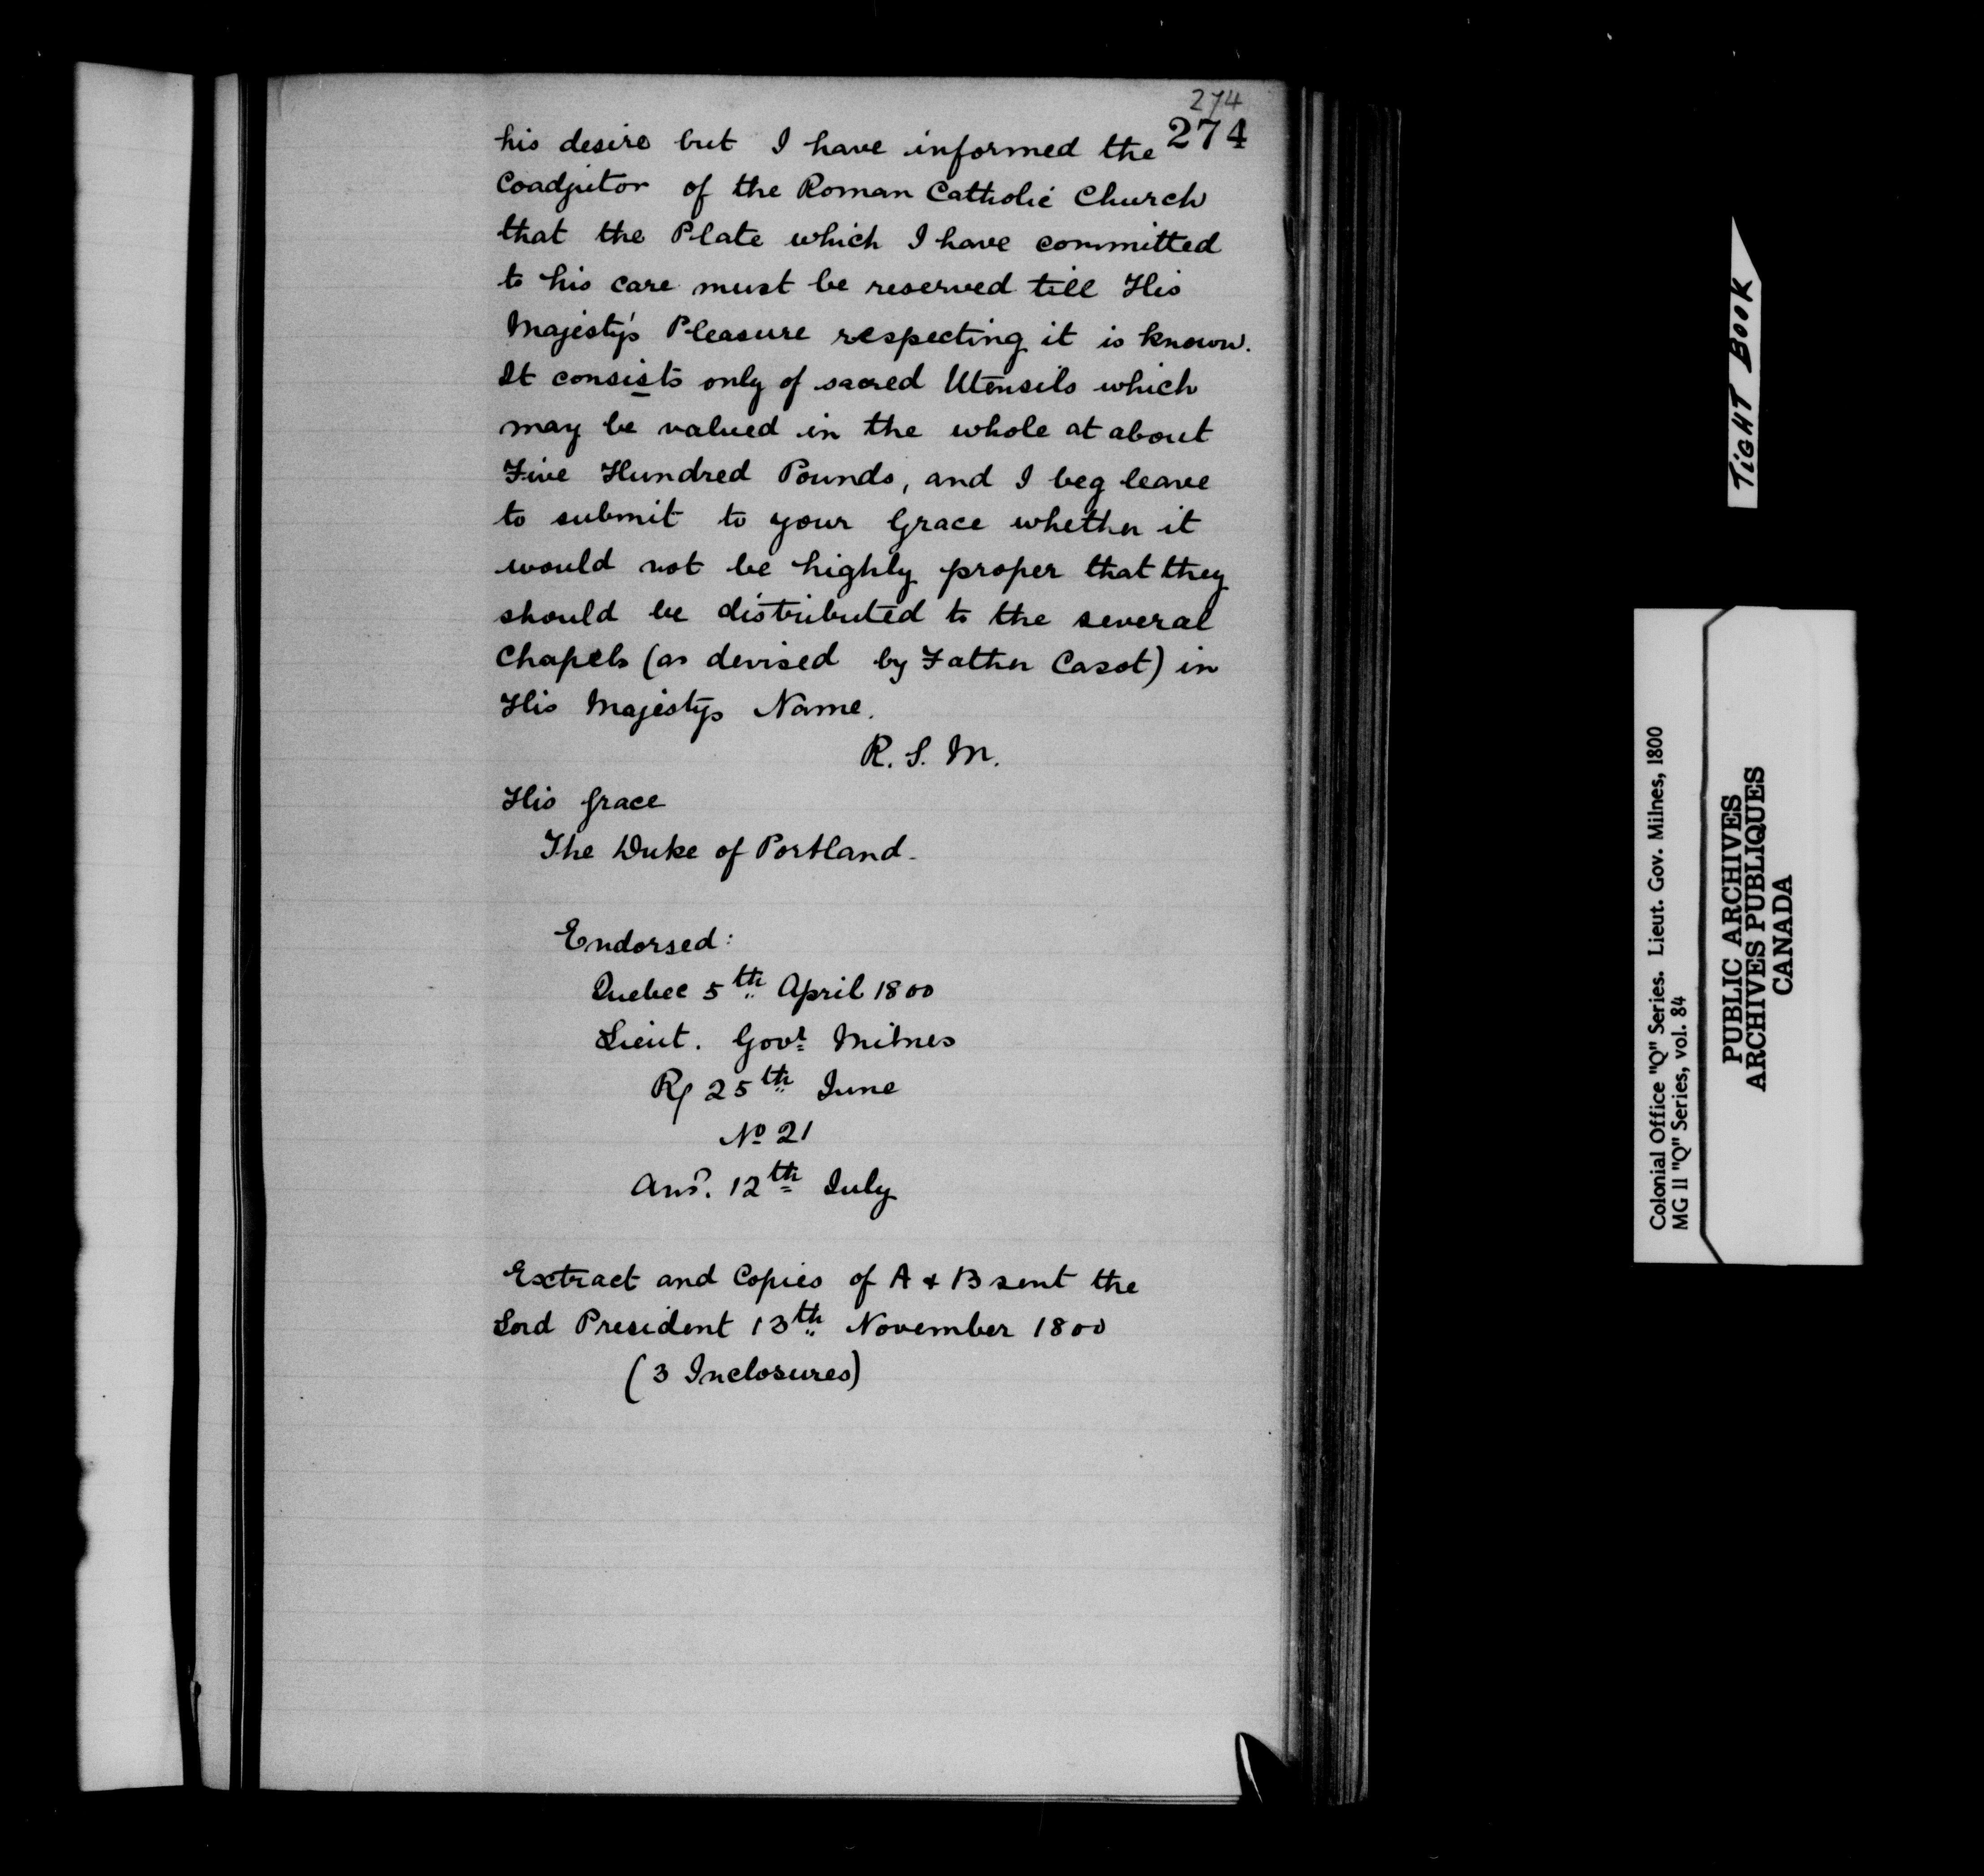 274
274
his desire but I have informed the
Coadjutor of the Roman Catholic Church
that the Plate which I have committed
to his care must be reserved till His
Majesty's Pleasure respecting it is known.
It consists only of sacred Utensils which
may be valued in the whole at about
Five Hundred Pounds, and I beg leave
to submit to your Grace whether it
would not be highly proper that they
should be distributed to the several
Chapels (as devised by Father Casot) in
His Majestys Name.
R. S. M.
His Grace
The Duke of Portland.
Endorsed:
Quebec 5th April 1800
Lieut. Govr Milnes
R/ 25th June
No 21
Ansd. 12th July
Extract and Copies of A & B sent the
Lord President 13th November 1800
(3 Inclosures)
TIGHT BOOK
Colonial Office "Q" Series. Lieut. Gov. Milnes, 1800
MG 11 "Q" Series, vol. 84
PUBLIC ARCHIVES
ARCHIVES PUBLIQUES
CANADA